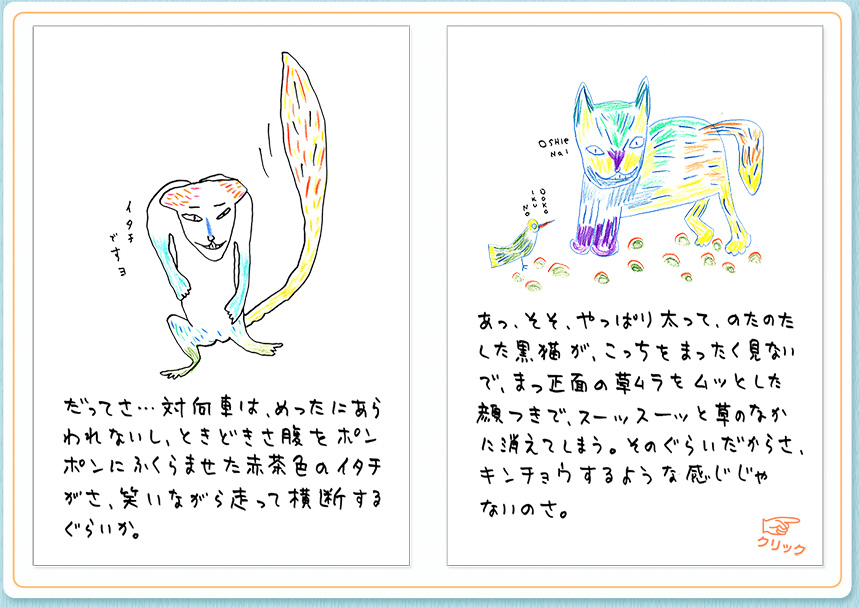 イタチ
ですヨ
だってさ…対向車は、めったにあら
われないし、ときどきさ腹をポン
ポンにふくらませた赤茶色のイタチ
がさ、笑いながら走って横断する
ぐらいか。
OSHIE
NAI
DOKO
IKU
NO
あっ、そそ、やっぱり太って、のたのた
した黒猫が、こっちをまったく見ない
で、まっ正面の草ムラをムッとした
顔つきで、スーッスーッと草のなか
に消えてしまう。そのぐらいだからさ、
キンチョウするような感じじゃ
ないのさ。
クリック